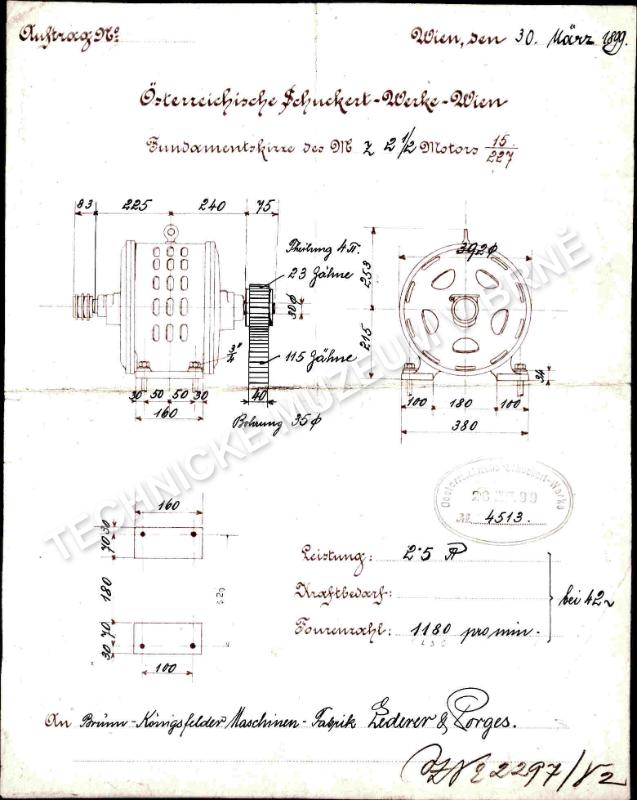 Auftrag No
Wien, den 30. März 1899.
Österreichische Schuckert-Werke-Wien
Fundamentskizze des M z 2 1/2 Motors 15/227
83 225 240 75
Theilung 4 π.
23 Zähne
30φ
3/4"
115 Zähne
30 50 50 30
160
40
Bohrung 35φ
392φ
253
215
34
100 180 100
380
160
70 30
180
30 70
100
Oesterreichische Schuckert-Werke
No 4513.
Leistung: 2·5 P
Kraftbedarf:
Tourenzahl: 1180 pro min.
bei 42~
An Brünn-Königsfelder Maschinen-Fabrik Lederer & Porges.
2297/V2
TECHNICKÉ MUZEUM V BRNĚ